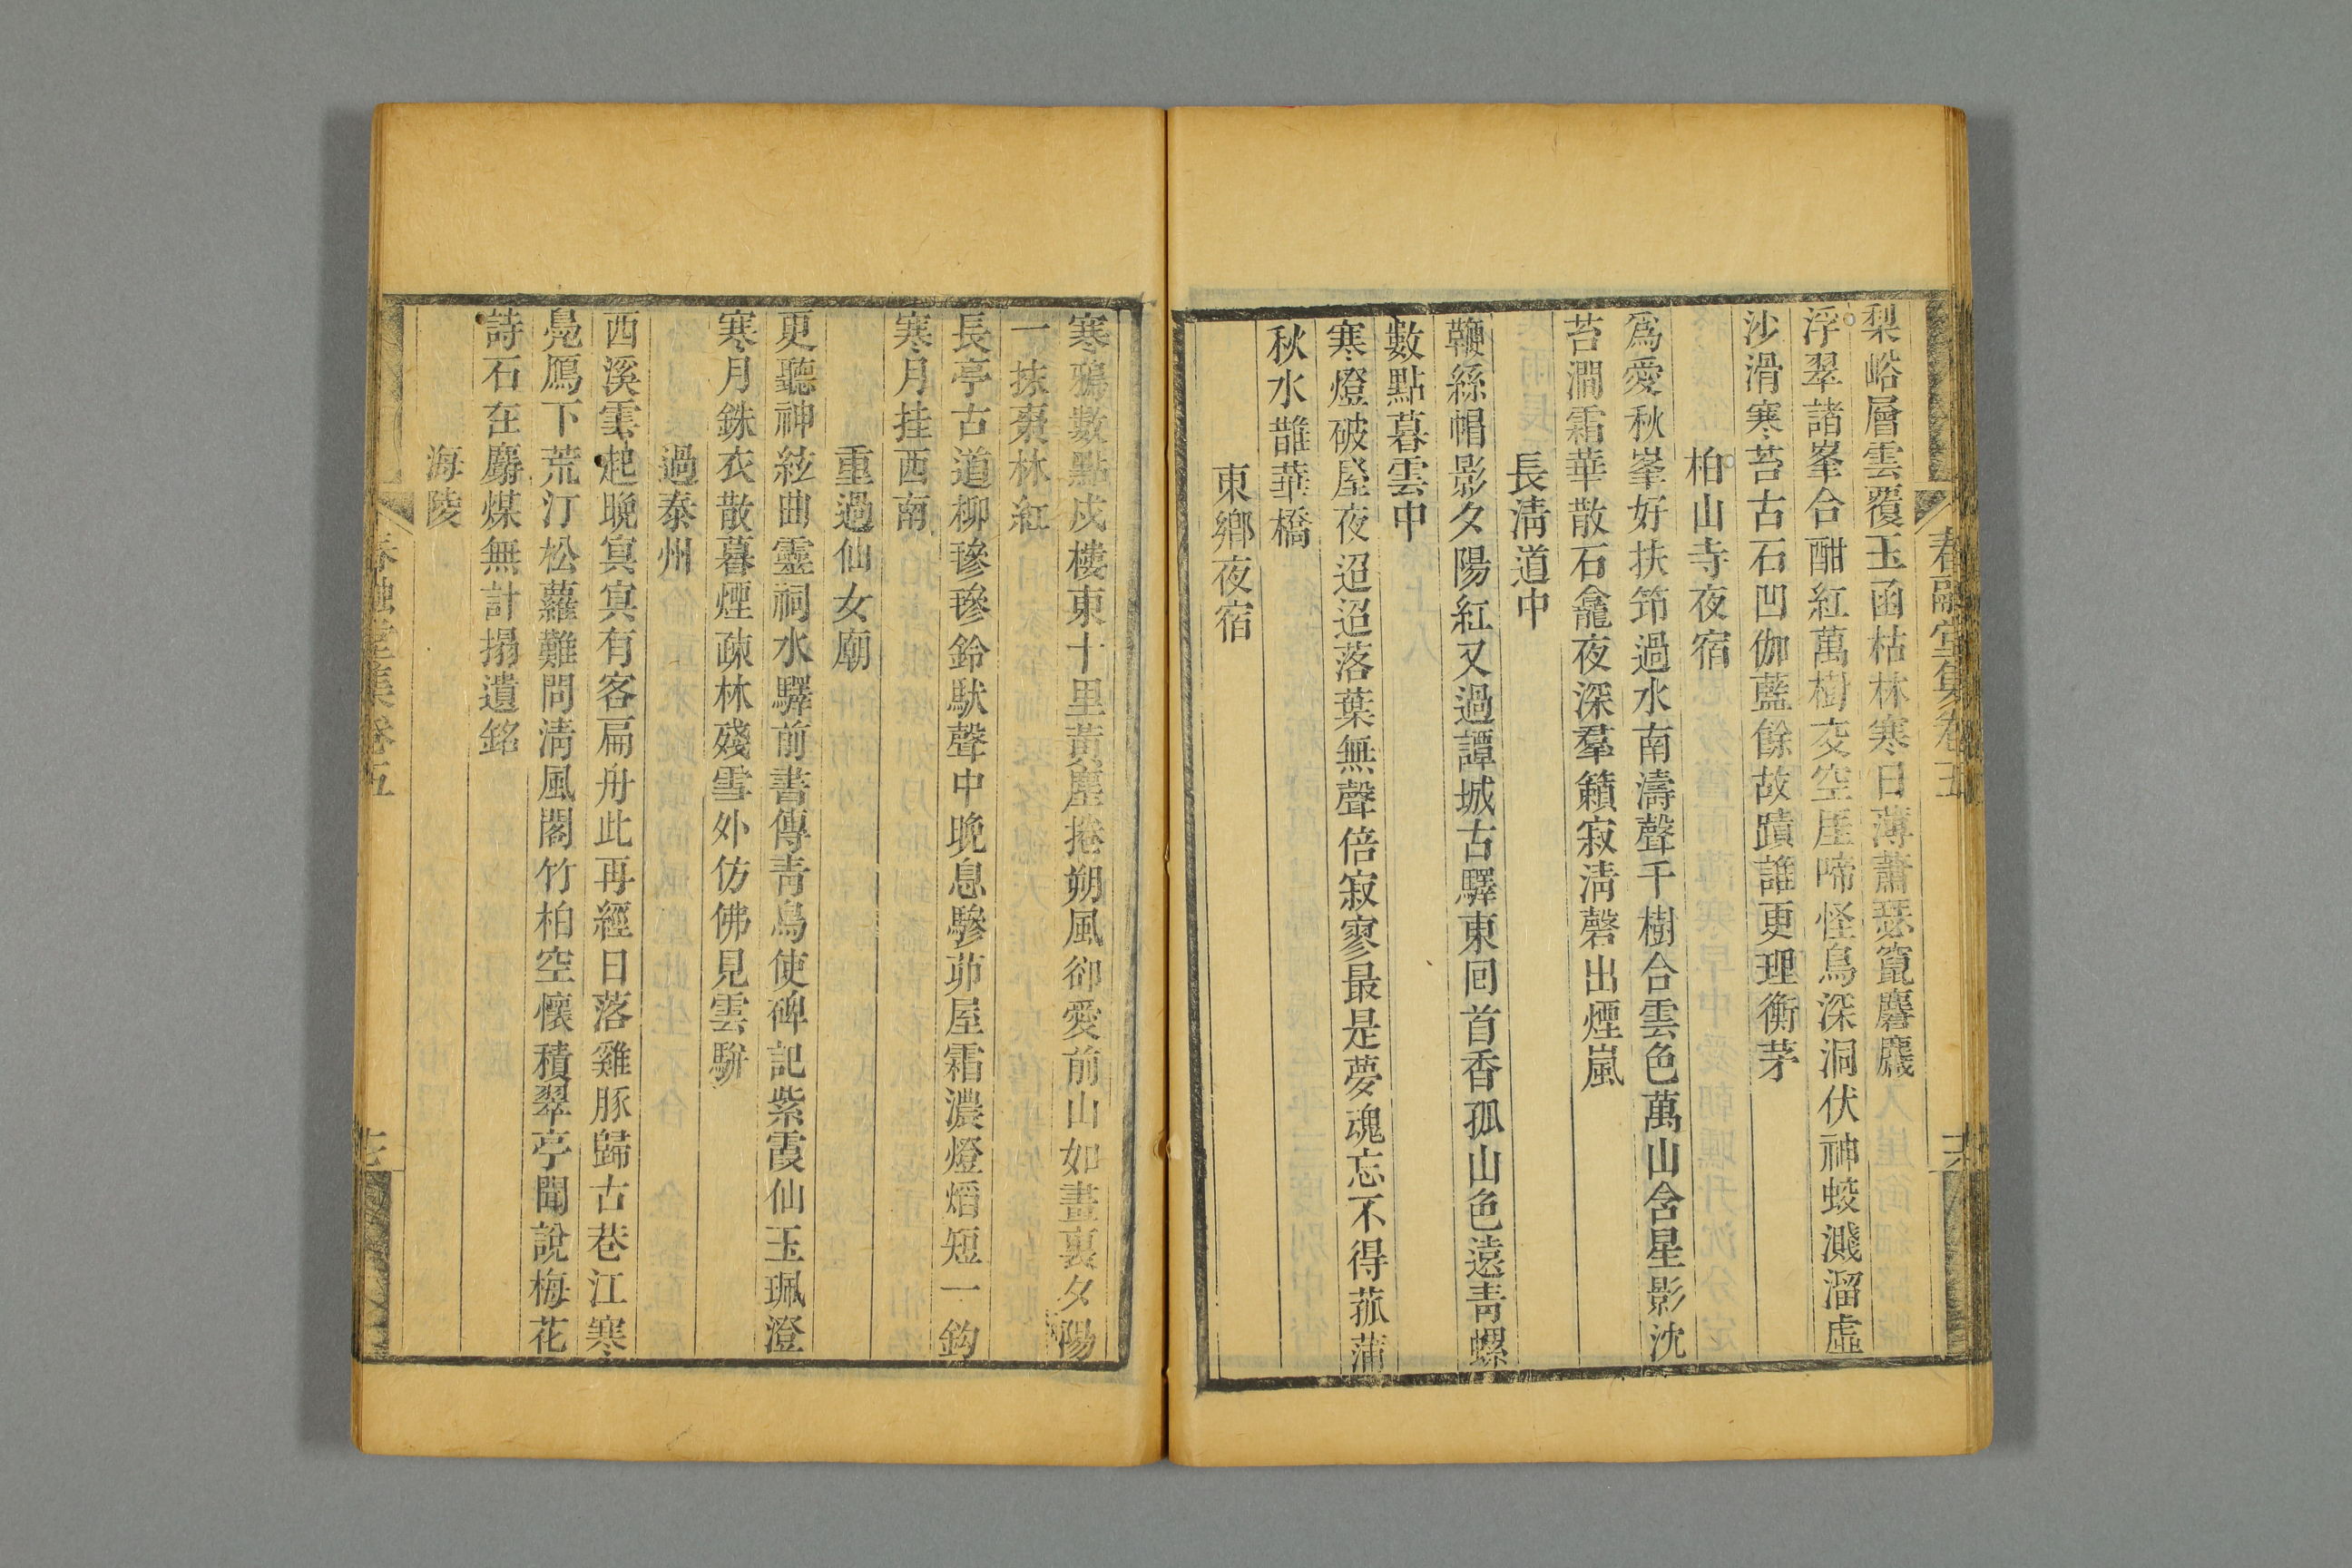 春融堂集卷五
梨峪層雲覆玉函枯林寒日薄蕭瑟竄麏麚
浮翠諸峯合酣紅萬樹交空厓啼怪鳥深洞伏神蛟濺溜虛
沙滑寒苔古石凹伽藍餘故蹟誰更理衡茅
柏山寺夜宿
爲愛秋峯好扶筇過水南濤聲千樹合雲色萬山含星影沈
苔澗霜華散石龕夜深羣籟寂淸磬出煙嵐
長淸道中
鞭絲帽影夕陽紅又過譚城古驛東回首香孤山色遠靑螺
數點暮雲中
寒燈破屋夜迢迢落葉無聲倍寂寥最是夢魂忘不得菰蒲
秋水鵲華橋
東鄕夜宿
寒鴉數點戍樓東十里黃塵捲朔風卻愛前山如畫裏夕陽
一抹棗林紅
長亭古道柳毿毿鈴馱聲中晚息驂茆屋霜濃燈熖短一鈎
寒月挂西南
重過仙女廟
更聽神絃曲靈祠水驛前書傳靑鳥使碑記紫霞仙玉珮澄
寒月銖衣散暮煙疎林殘雪外仿佛見雲駢
過泰州
西溪雲起晚寘寘有客扁舟此再經日落雞豚歸古巷江寒
鳧鴈下荒汀松蘿難問淸風閣竹柏空懷積翠亭聞說梅花
詩石在麝煤無計搨遺銘
海陵
春融堂集卷五